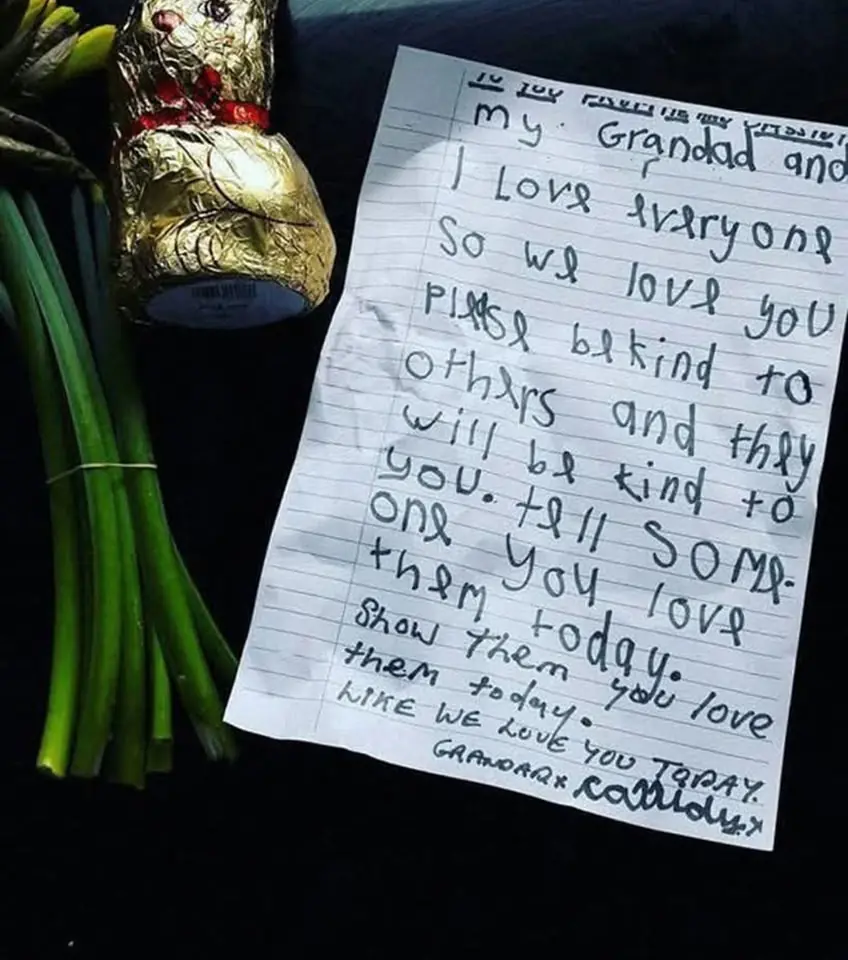 TO YOU FROM ME AND
my Grandad and
I Love everyone
so we love you
please be kind to
others and they
will be kind to
you. tell some-
one you love
them today.
Show them you love
them today.
LIKE WE LOVE YOU TODAY.
GRANDAD x Cassidy.x